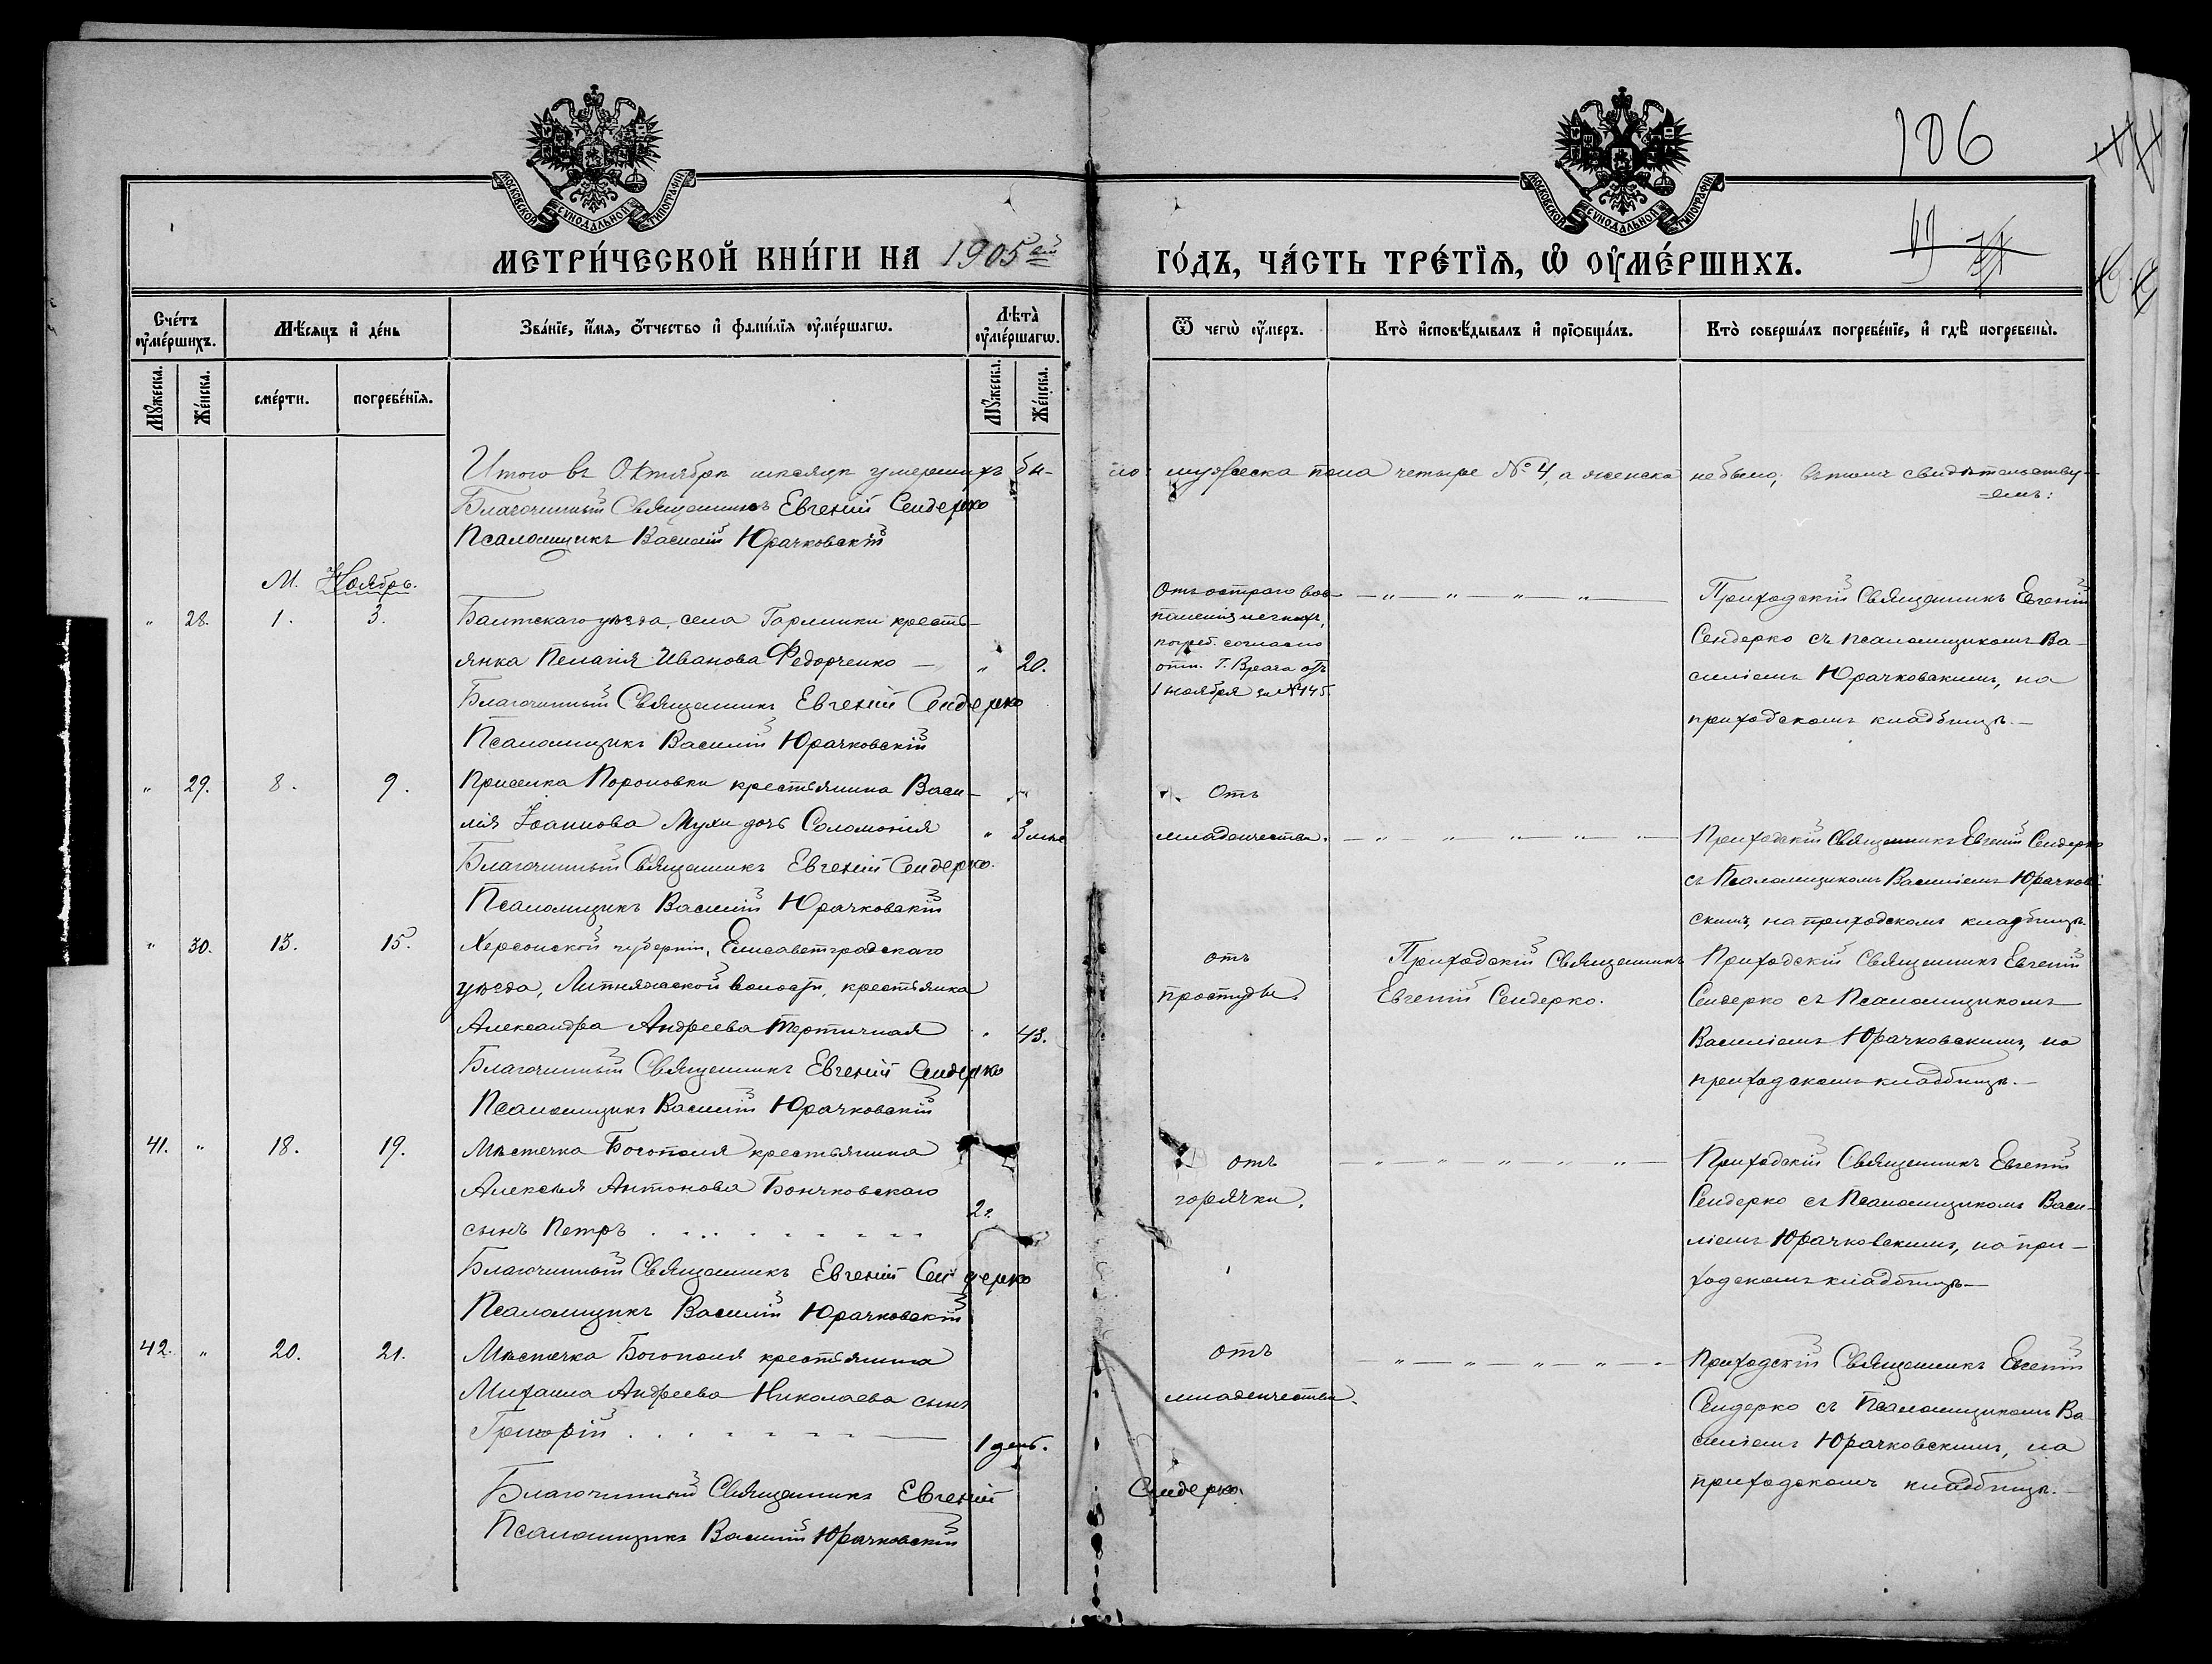 МОСКОВСКОЙ СУНОДАЛЬНОЙ ТИПОГРАФІИ
МОСКОВСКОЙ СУНОДАЛЬНОЙ ТИПОГРАФІИ
106
МЕТРИ́ЧЕСКОЙ КНИ́ГИ НА 1905ый ГО́ДЪ, ЧА́СТЬ ТРЕ́ТІѦ, Ѡ҆ ОУ҆МЕ́РШИХЪ.
Сче́тъ оу҆ме́ршихъ.
Мѣ́сяцъ и҆ де́нь
Зва́нїе, и҆́мѧ, ѻ҆́тчество и҆ фамѝлїѧ оу҆ме́ршагѡ.
Лѣ́та оу҆ме́ршагѡ.
Ѿ чегѡ̀ оу҆́меръ.
Кто̀ и҆сповѣ́дывалъ и҆ прїѻбща́лъ.
Кто̀ соверша́лъ погребе́нїе, и҆ гдѣ̀ погребены̀.
Мꙋ́жеска.
Же́нска.
сме́рти.
погребе́нїѧ.
Мꙋ́жеска.
Же́нска.
Итого въ Октябрѣ мѣсяцѣ умершихъ бы-
ло: мужеска пола четыре № 4, а женска не было; въ томъ свидѣтельству-
=емъ:
Благочинный Священникъ Евгеній Сендерко
Псаломщикъ Василій Юрачковскій
М. Ноябрь.
" 28. 1. 3. Балтскаго уѣзда, села Гармики кресть-
янка Пелагія Иванова Федорченко — " 20.
Благочинный Священникъ Евгеній Сендерко
Псаломщикъ Василій Юрачковскій
Отъ остраго вос-
паленія легкихъ,
погреб. согласно
отн. Г. Врача отъ
1 ноября за № 445.
— " — " — " — " —
Приходскій Священникъ Евгеній
Сендерко съ псаломщикомъ Ва-
силіемъ Юрачковскимъ, на
приходскомъ кладбищѣ.—
" 29. 8. 9. Приселка Пороновки крестьянина Васи-
лія Іоаннова Мухи дочь Соломонія " 3 мѣс
Благочинный Священникъ Евгеній Сендерко.
Псаломщикъ Василій Юрачковскій
Отъ
младенчества.
— " — " — " — " —
Приходскій Священникъ Евгеній Сендерко
съ Псаломщикомъ Василіемъ Юрачков-
скимъ, на приходскомъ кладбищѣ.
" 30. 13. 15. Херсонской губерніи, Елисаветградскаго
уѣзда, Липняжской волости, крестьянка
Александра Андреева Тертичная " 43.
Благочинный Священникъ Евгеній Сендерко
Псаломщикъ Василій Юрачковскій
отъ
простуды.
Приходскій Священникъ
Евгеній Сендерко.
Приходскій Священникъ Евгеній
Сендерко съ Псаломщикомъ
Василіемъ Юрачковскимъ, на
приходскомъ кладбищѣ.—
41. " 18. 19. Мѣстечка Богополя крестьянина
Алексѣя Антонова Бончковскаго
сынъ Петръ . . . . . . . . . 2 г.
Благочинный Священникъ Евгеній Сендерко
Псаломщикъ Василій Юрачковскій
отъ
горячки.
— " — " — " — " — " —
Приходскій Священникъ Евгеній
Сендерко съ Псаломщикомъ Васи-
ліемъ Юрачковскимъ, на при-
ходскомъ кладбищѣ—
42. " 20. 21. Мѣстечка Богополя крестьянина
Михаила Андреева Николаева сынъ
Григорій . . . . . . — 1 день.
Благочинный Священникъ Евгеній Сендерко.
Псаломщикъ Василій Юрачковскій
отъ
младенчества.
— " — " — " — " —
Приходскій Священникъ Евгеній
Сендерко съ Псаломщикомъ Ва-
силіемъ Юрачковскимъ, на
приходскомъ кладбищѣ.—